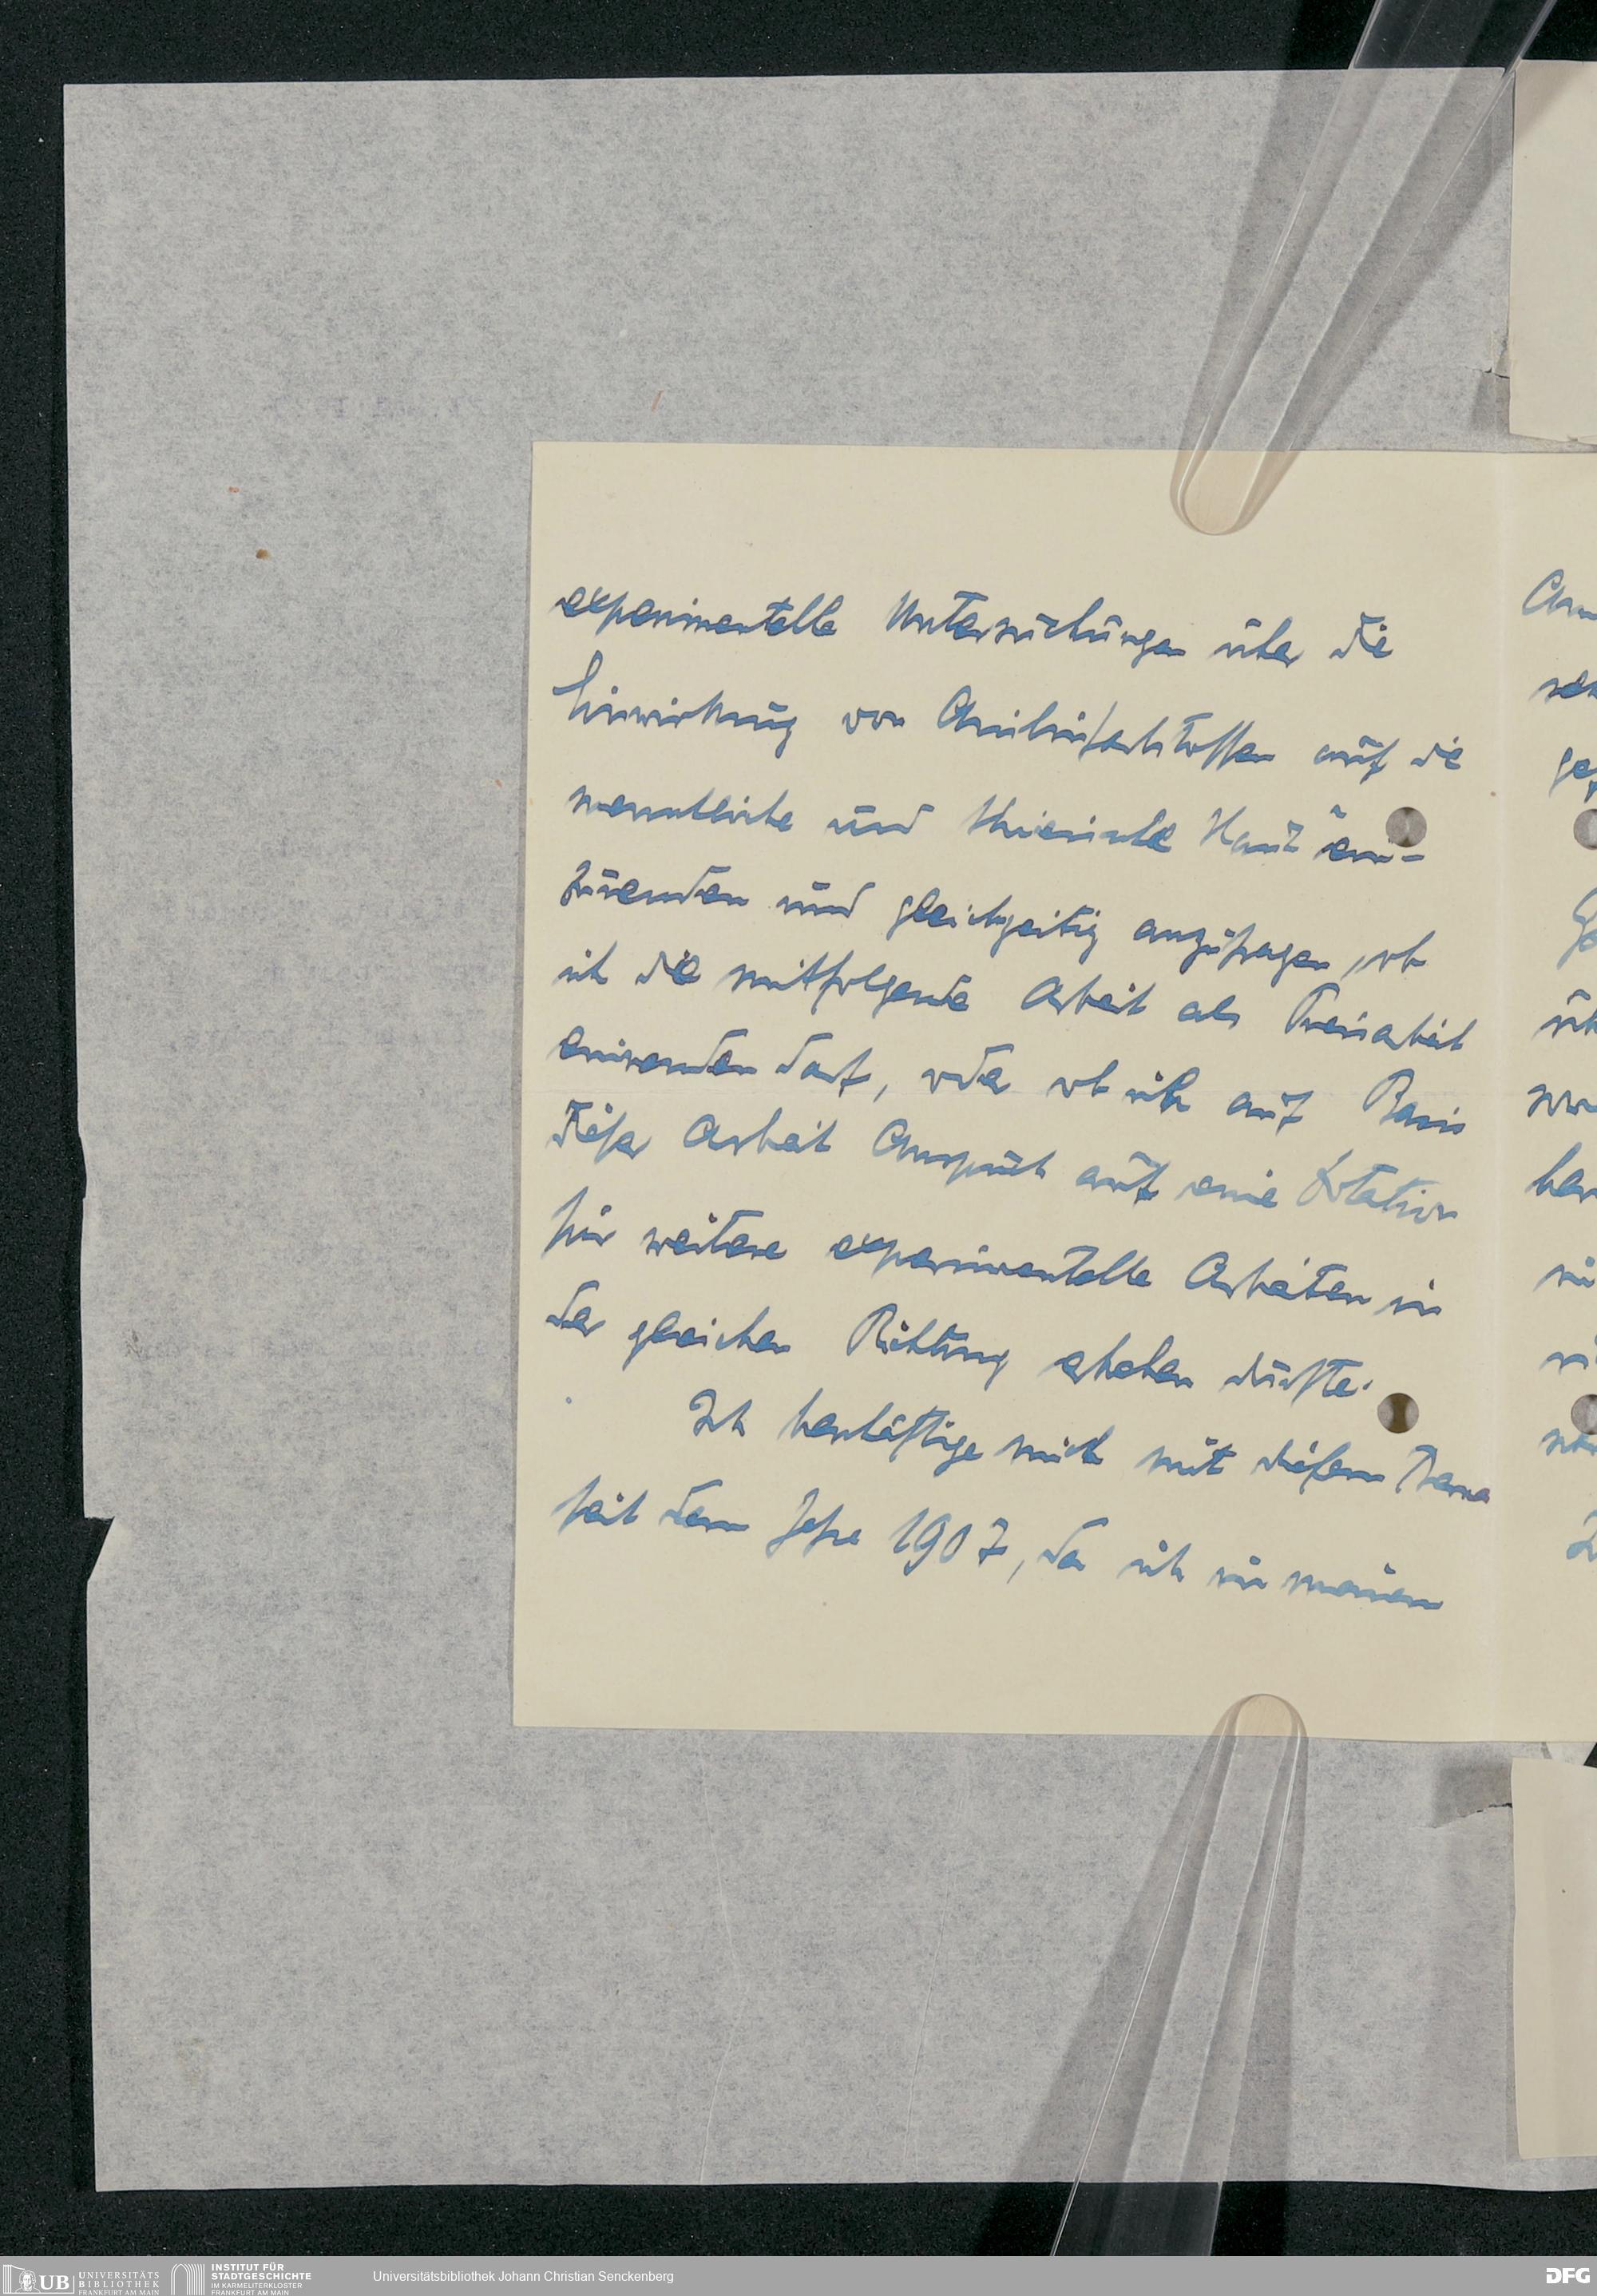 experimentelle Untersuchungen über die
Einwirkung von Anilinfarbstoffen auf die
menschliche und thierische Haut ein-
zusenden und gleichzeitig anzufragen, ob
ich die mitfolgende Arbeit als Preisarbeit
einsenden darf, oder ob ich auf Basis
dieser Arbeit Anspruch auf eine Dotation
für weitere experimentelle Arbeiten in
der gleichen Richtung erheben dürfte.
Ich beschäftige mich mit diesem Thema
seit dem Jahre 1907, da ich in meinem
UB UNIVERSITÄTS
BIBLIOTHEK
FRANKFURT AM MAIN
INSTITUT FÜR
STADTGESCHICHTE
IM KARMELITERKLOSTER
FRANKFURT AM MAIN
Universitätsbibliothek Johann Christian Senckenberg
DFG